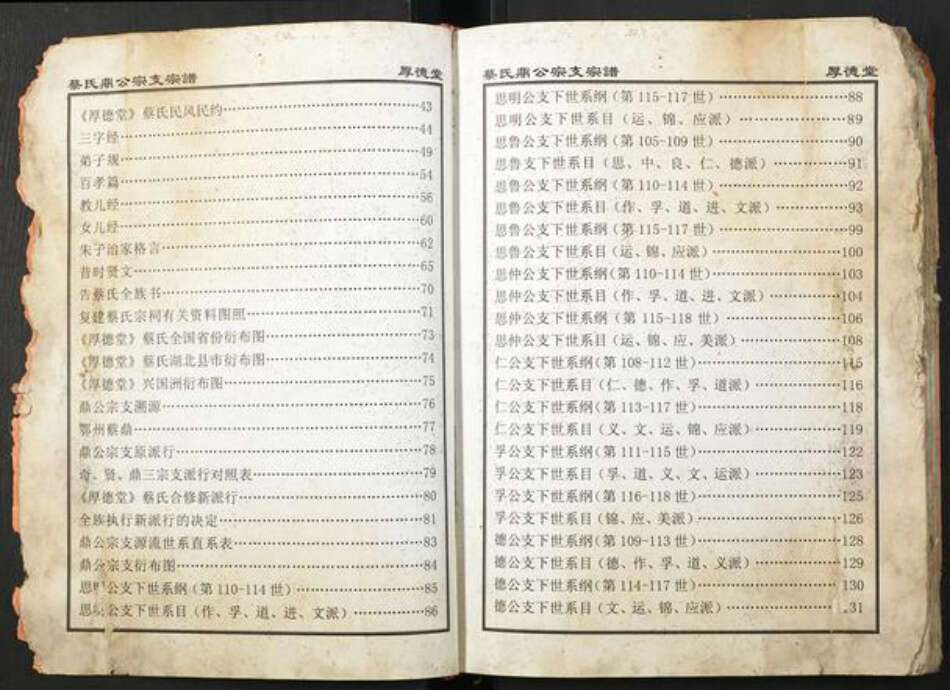 蔡氏鼎公宗支宗譜 厚德堂
《厚德堂》蔡氏民风民约 43
三字经 44
弟子规 49
百孝篇 54
教儿经 56
女儿经 60
朱子治家格言 62
昔时贤文 65
告蔡氏全族书 70
复建蔡氏宗祠有关资料图照 71
《厚德堂》蔡氏全国省份衍布图 73
《厚德堂》蔡氏湖北县市衍布图 74
《厚德堂》兴国洲衍布图 75
鼎公宗支溯源 76
鄂州蔡鼎 77
鼎公宗支原派行 78
奇、贤、鼎三宗支派行对照表 79
《厚德堂》蔡氏合修新派行 80
全族执行新派行的决定 81
鼎公宗支源流世系直系表 83
鼎公宗支衍布图 84
思明公支下世系纲（第110-114世） 85
思明公支下世系目（作、孚、道、进、文派） 86
蔡氏鼎公宗支宗譜 厚德堂
思明公支下世系纲（第115-117世） 88
思明公支下世系目（运、锦、应派） 89
思鲁公支下世系纲（第105-109世） 90
思鲁支下世系目（思、中、良、仁、德派） 91
思鲁公支下世系纲（第110-114世） 92
思鲁公支下世系目（作、孚、道、进、文派） 93
思鲁公支下世系纲（第115-117世） 99
思鲁公支下世系目（运、锦、应派） 100
思仲公支下世系纲（第110-114世） 103
思仲公支下世系目（作、孚、道、进、文派） 104
思仲公支下世系纲（第115-118世） 106
思仲公支下世系目（运、锦、应、美派） 108
仁公支下世系纲（第108-112世） 115
仁公支下世系目（仁、德、作、孚、道派） 116
仁公支下世系纲（第113-117世） 118
仁公支下世系目（义、文、运、锦、应派） 119
孚公支下世系纲（第111-115世） 122
孚公支下世系目（孚、道、义、文、运派） 123
孚公支下世系纲（第116-118世） 125
孚公支下世系目（锦、应、美派） 126
德公支下世系纲（第109-113世） 128
德公支下世系目（德、作、孚、道、义派） 129
德公支下世系纲（第114-117世） 130
德公支下世系目（文、运、锦、应派） 31